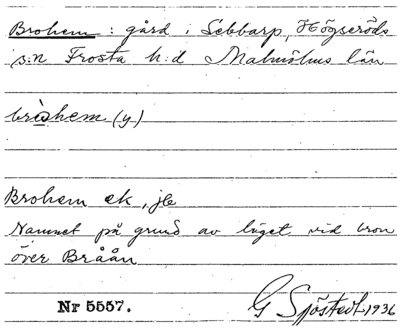 Brohem : gård i Sebbarp, Högseröds
s:n Frosta h:d Malmöhus län
bròhem (y)
Brohem ek, jb
Namnet på grund av läget vid bron
över Bråån
Nr 5557. G Sjöstedt 1936